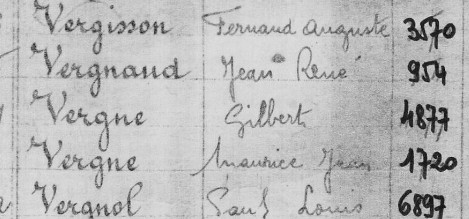 Vergisson Fernand Auguste 3570
Vergnaud Jean René 954
Vergne Gilbert 4877
Vergne Maurice Jean 1720
Vergnol Paul Louis 6897